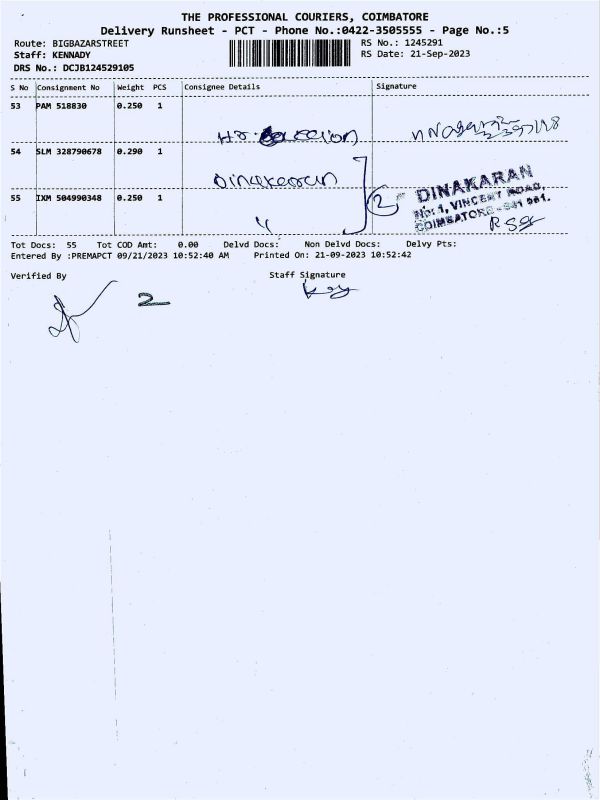 THE PROFESSIONAL COURIERS, COIMBATORE
Delivery Runsheet - PCT - Phone No.:0422-3505555 - Page No.:5
Route: BIGBAZARSTREET
RS No.: 1245291
Staff: KENNADY
RS Date: 21-Sep-2023
DRS No.: DCJB124529105
S No Consignment No Weight PCS Consignee Details Signature
53 PAM 518830 0.250 1
54 SLM 328790678 0.290 1
Dinakaran
2
DINAKARAN
No: 1, VINCENT ROAD,
COIMBATORE - 641 001.
55 IXM 504990348 0.250 1
"
Tot Docs: 55 Tot COD Amt: 0.00 Delvd Docs: Non Delvd Docs: Delvy Pts:
Entered By :PREMAPCT 09/21/2023 10:52:40 AM Printed On: 21-09-2023 10:52:42
Verified By Staff Signature
2